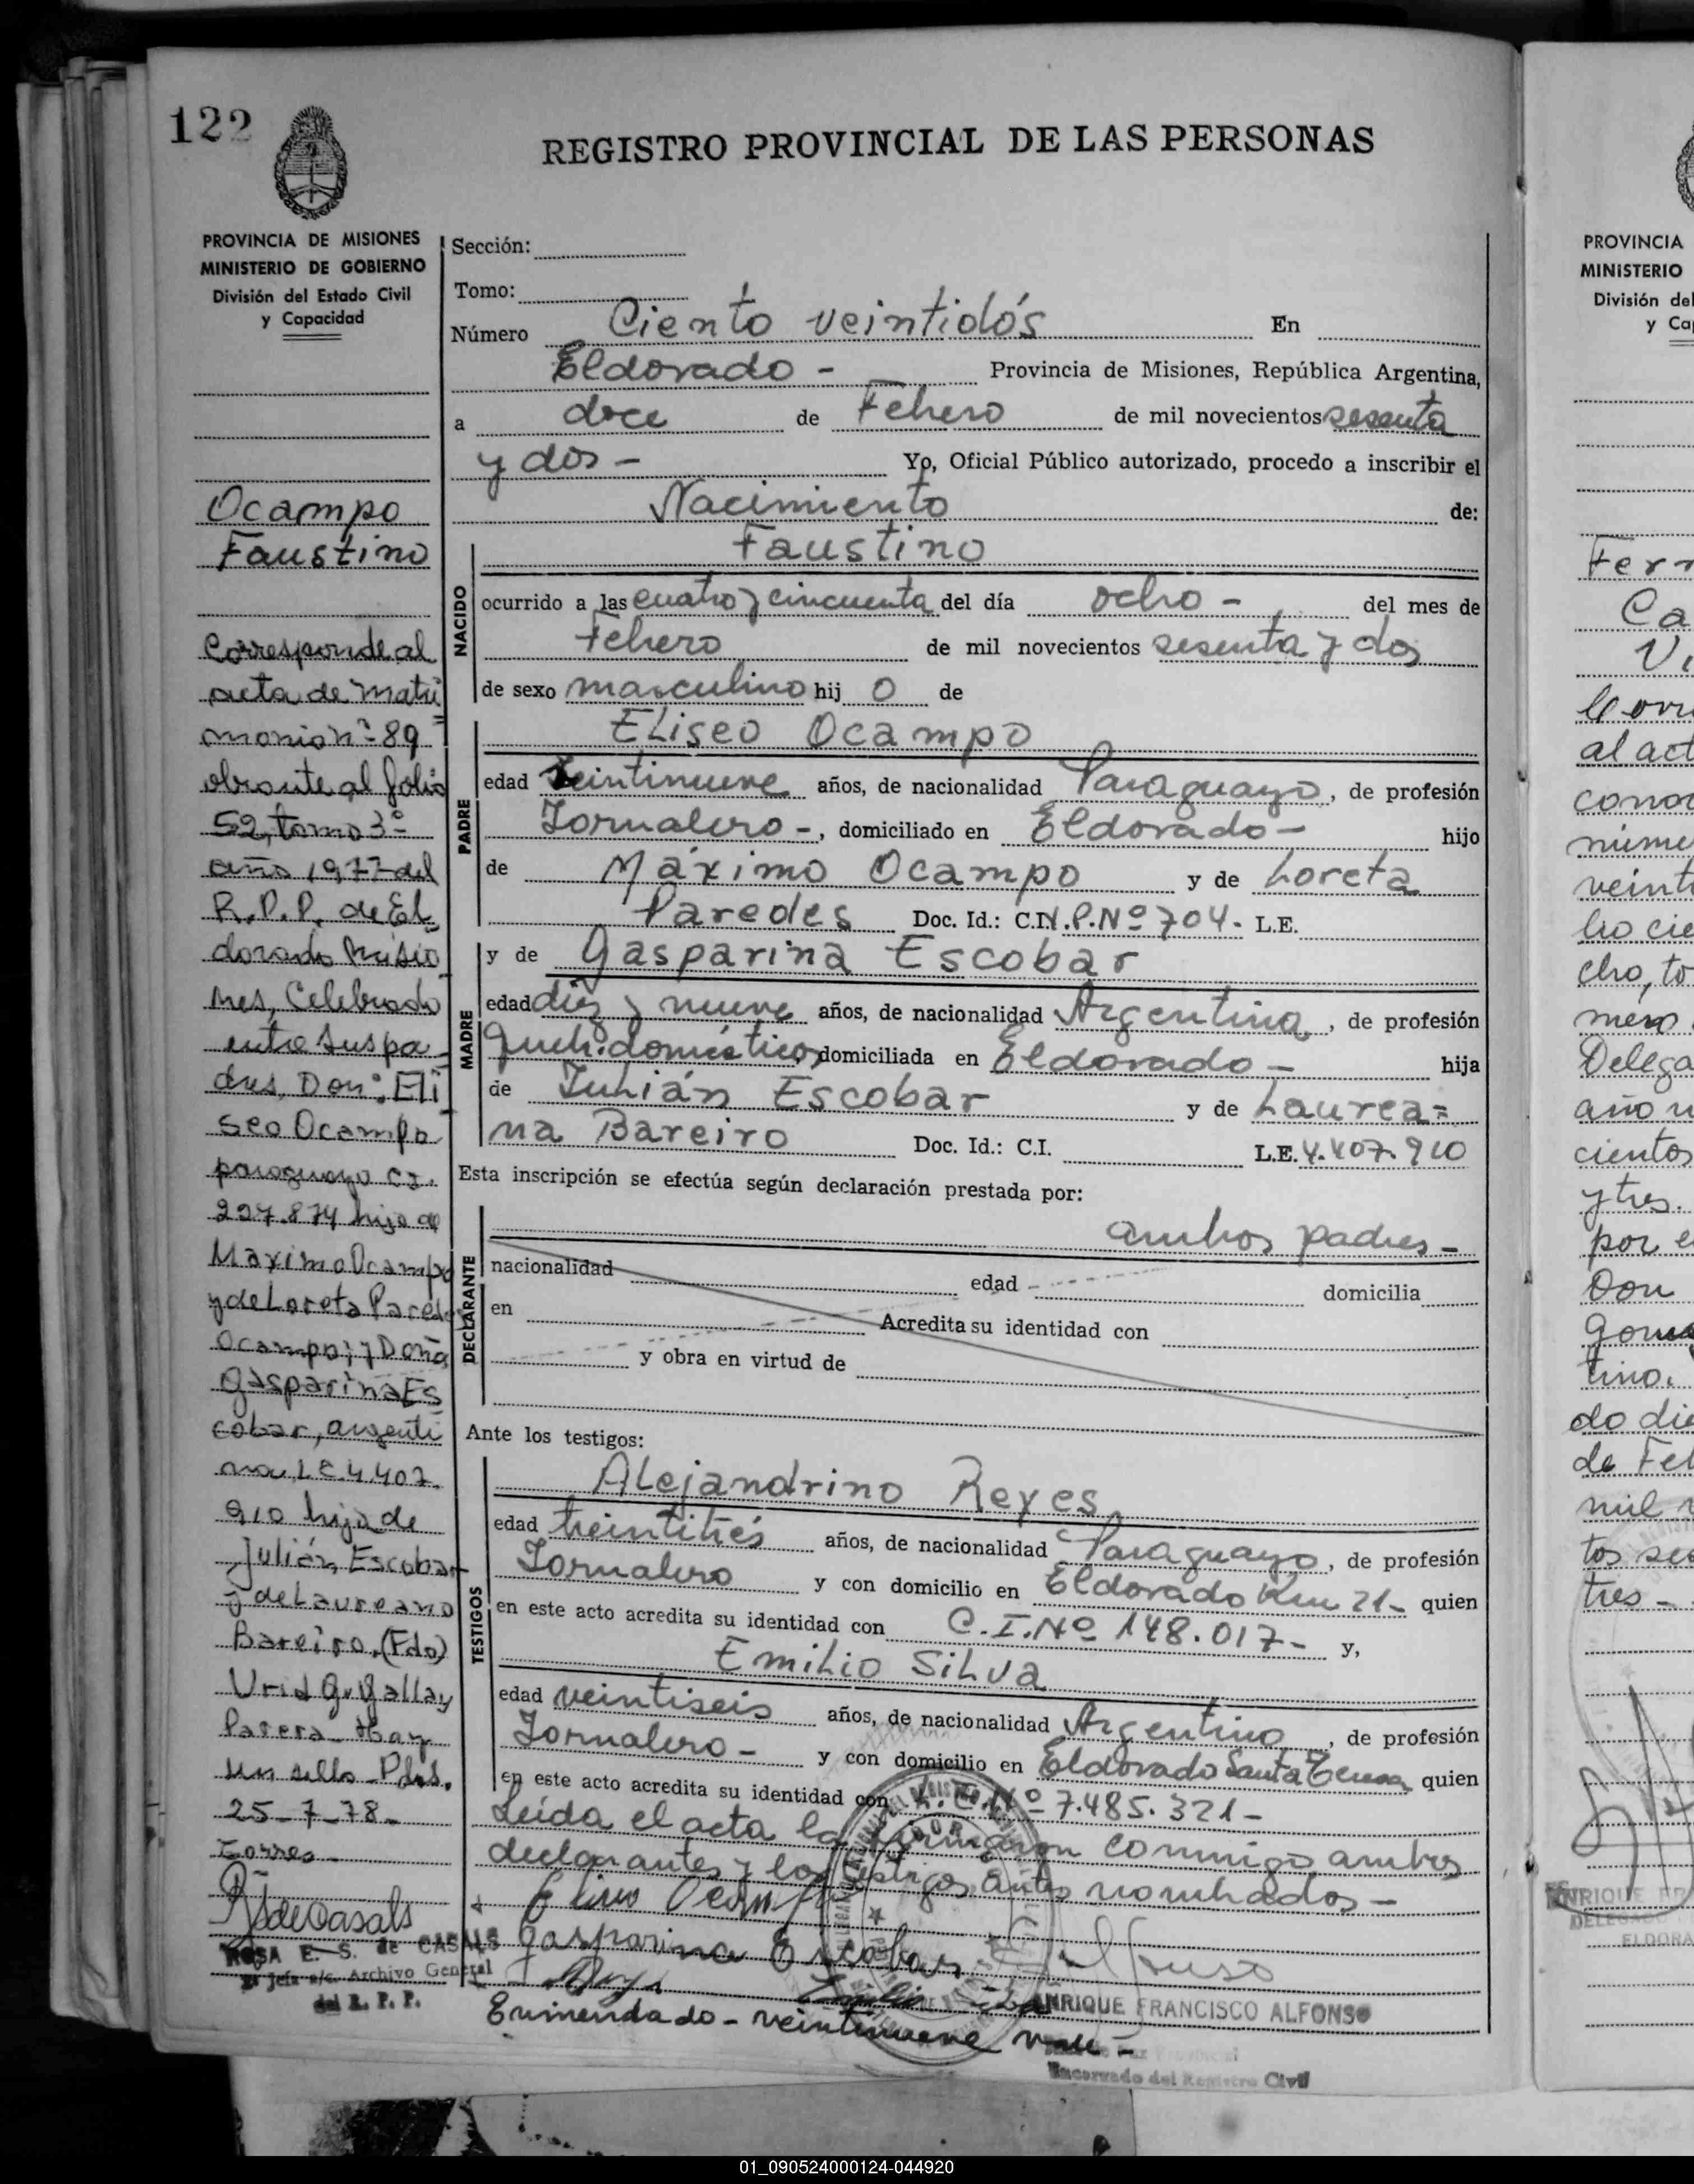 122
REGISTRO PROVINCIAL DE LAS PERSONAS
PROVINCIA DE MISIONES
MINISTERIO DE GOBIERNO
División del Estado Civil
y Capacidad
Ocampo
Faustino
Corresponde al
acta de matri
monio nº 89
obrante al folio
52, tomo 3º
año 1977 del
R.P.P. de El
dorado Misio
nes, Celebrado
entre sus pa
dres, Don: Eli
seo Ocampo
paraguayo C.I.
207.874 hijo de
Maximo Ocampo
y de Loreta Paredes
Ocampo; y Doña
Gasparina Es
cobar, argenti
na, L.E. 4.407.
910 hija de
Julián Escobar
y de Laureano
Bareiro. (Fdo)
Parera - Hay
un sello - Pdas.
25-7-78-
Torres -
ROSA E. S. de CASALS
jefa a/c. Archivo General
del R. P. P.
Sección:
Tomo:
Número Ciento veintidós En
Eldorado - Provincia de Misiones, República Argentina,
a doce de Febrero de mil novecientos sesenta
y dos - Yo, Oficial Público autorizado, procedo a inscribir el
Nacimiento de:
NACIDO
Faustino
ocurrido a las cuatro y cincuenta del día ocho - del mes de
Febrero de mil novecientos sesenta y dos
de sexo masculino hij o de
PADRE
Eliseo Ocampo
edad veintinueve años, de nacionalidad Paraguayo, de profesión
Jornalero -, domiciliado en Eldorado - hijo
de Máximo Ocampo y de Loreta
Paredes Doc. Id.: C.I.N.P.Nº 704- L.E.
MADRE
y de Gasparina Escobar
edad diez y nueve años, de nacionalidad Argentina, de profesión
Queh. domésticos, domiciliada en Eldorado - hija
de Julián Escobar y de Laurea=
na Bareiro Doc. Id.: C.I. L.E. 4.407.910
Esta inscripción se efectúa según declaración prestada por:
DECLARANTE
ambos padres -
nacionalidad edad domicilia
en Acredita su identidad con
y obra en virtud de
Ante los testigos:
TESTIGOS
Alejandrino Reyes
edad treintitrés años, de nacionalidad Paraguayo, de profesión
Jornalero y con domicilio en Eldorado Km 21- quien
en este acto acredita su identidad con C.I.Nº 148.017- y,
Emilio Silva
edad veintiseis años, de nacionalidad Argentino, de profesión
Jornalero - y con domicilio en Eldorado Santa Teresa quien
en este acto acredita su identidad con Nº 7.485.321-
Leída el acta la firmaron conmigo ambos
declarantes y los testigos antes nombrados -
Eliseo Ocampo
Gasparina Escobar
ENRIQUE FRANCISCO ALFONSO
Enmendado - veintinueve vale -
Encargado del Registro Civil
PROVINCIA
MINISTERIO
División del
y Ca
Fern
Ca
Vi
Corr
al act
cono
núme
veinti
cho cie
cho, to
mero
Delega
año n
cientos
y tres.
por e
Don
tino.
do die
de Feb
mil n
tos se
tres -
ENRIQUE FR
DELEGADO
ELDORA
01_090524000124-044920